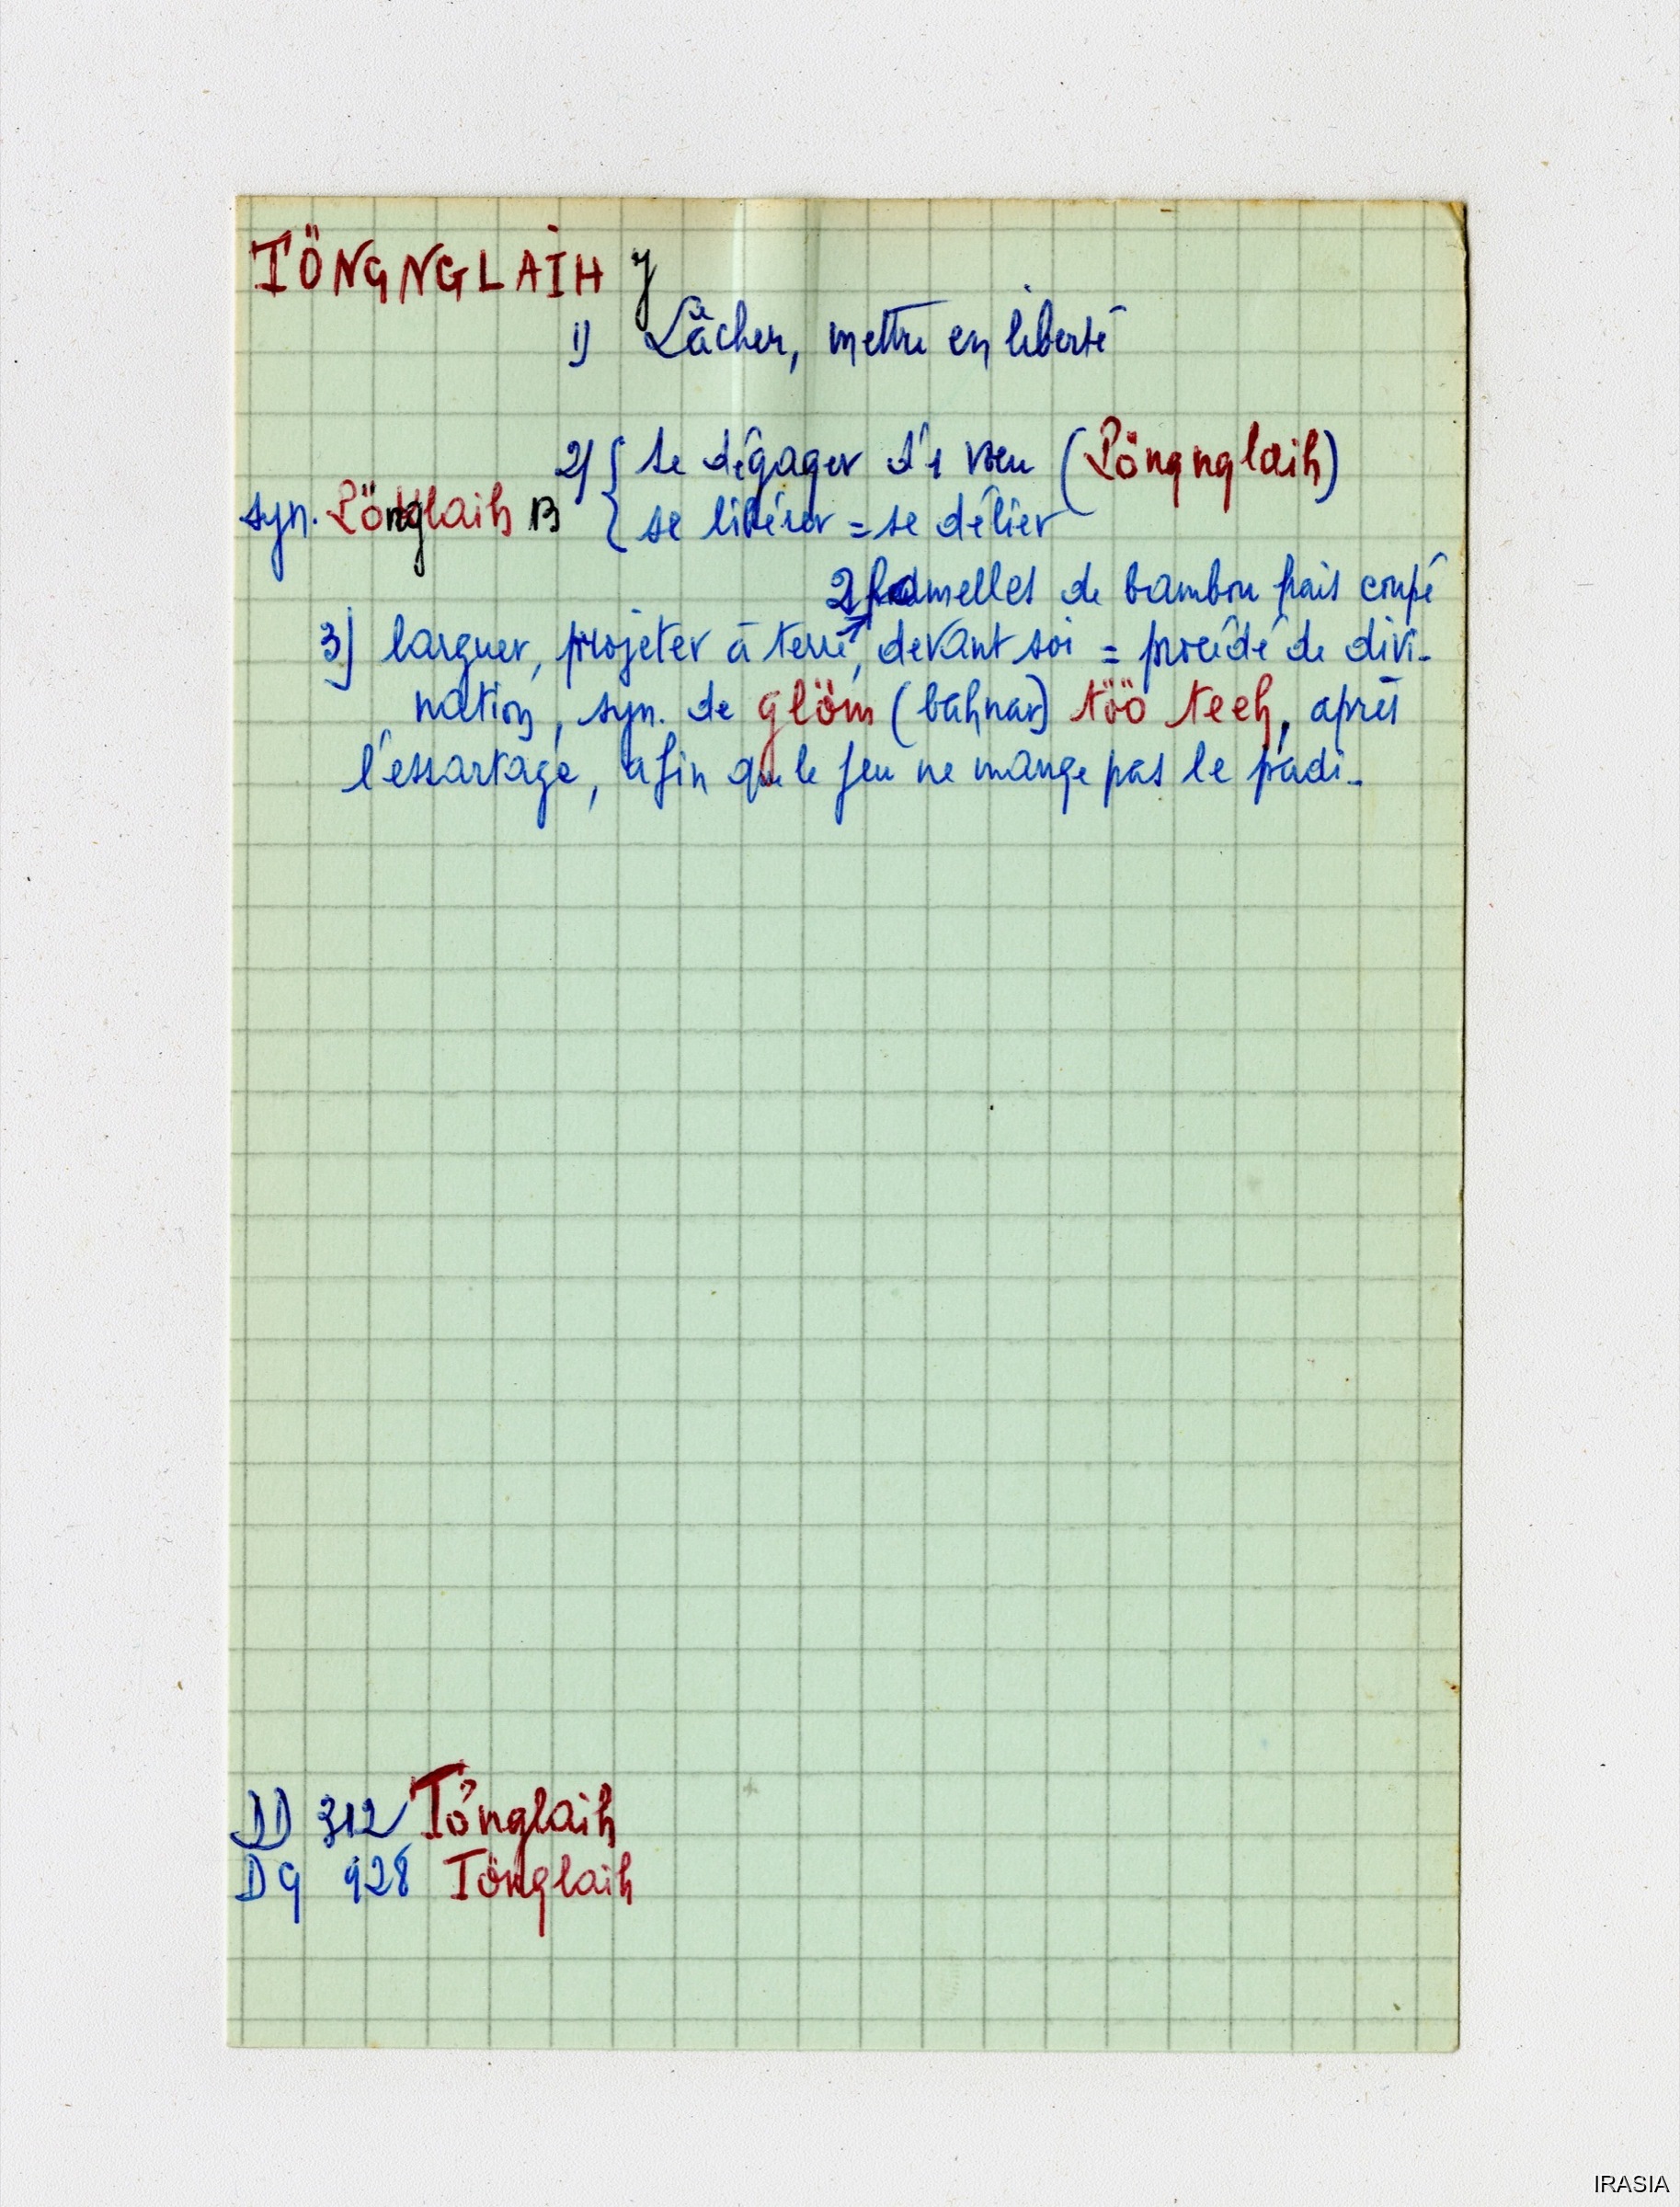 TÖNGNGLAIH y
1) Lâcher, mettre en liberté
2) { se dégager d'1 vœu (Pöngnglaih)
syn. Pönglaih B { se libérer = se délier
2 lamelles de bambou frais coupé
3) larguer, projeter à terre, devant soi = procédé de divi-
nation, syn. de glöm (bahnar) töö teeh, après
l'essartage, afin que le feu ne mange pas le padi-
DD 312 Tönglaih
DG 928 Tönglaih
IRASIA